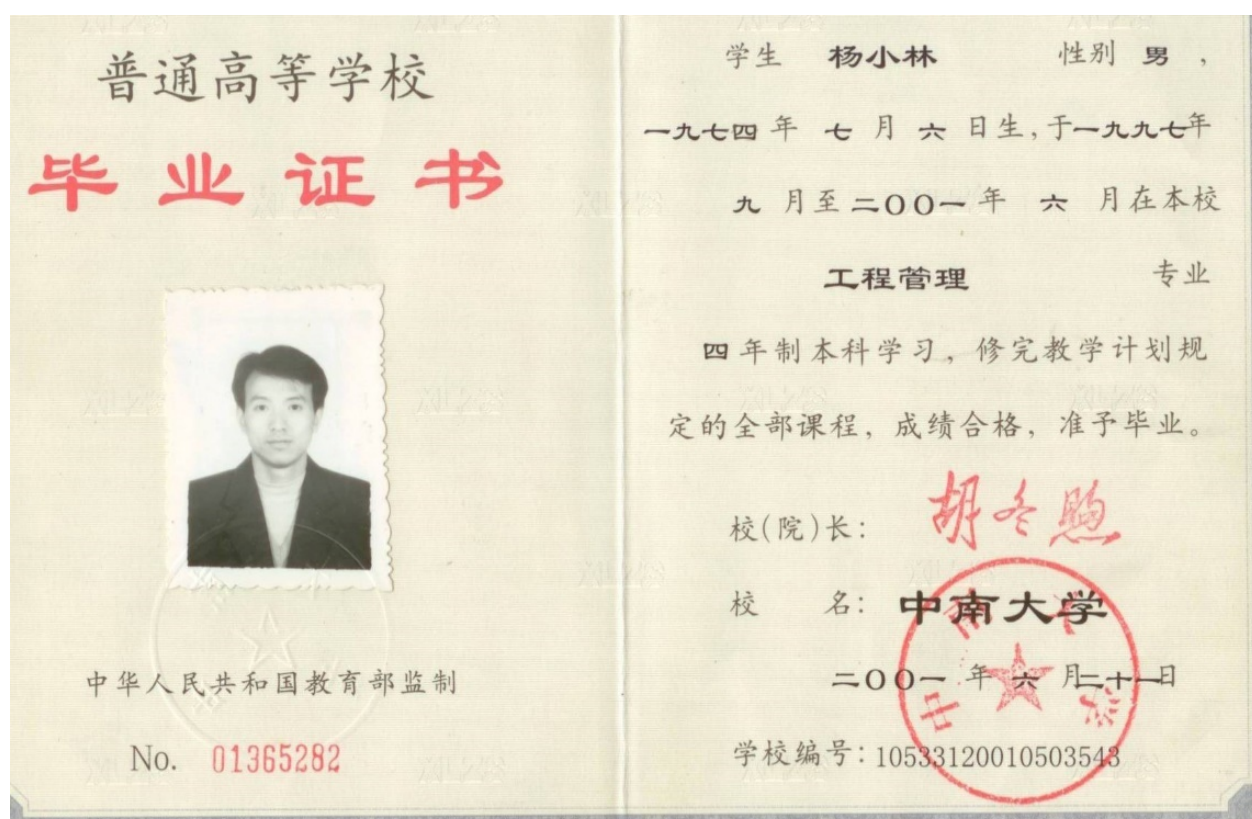 普通高等学校
毕业证书
中华人民共和国教育部监制
No. 01365282
学生 杨小林 性别 男 ，
一九七四 年 七 月 六 日生，于一九九七年
九 月至 二〇〇一 年 六 月在本校
工程管理 专业
四 年制本科学习，修完教学计划规
定的全部课程，成绩合格，准予毕业。
校(院)长：
校 名：中南大学
二〇〇一 年 六 月二十一日
学校编号：10533120010503543
中南大学